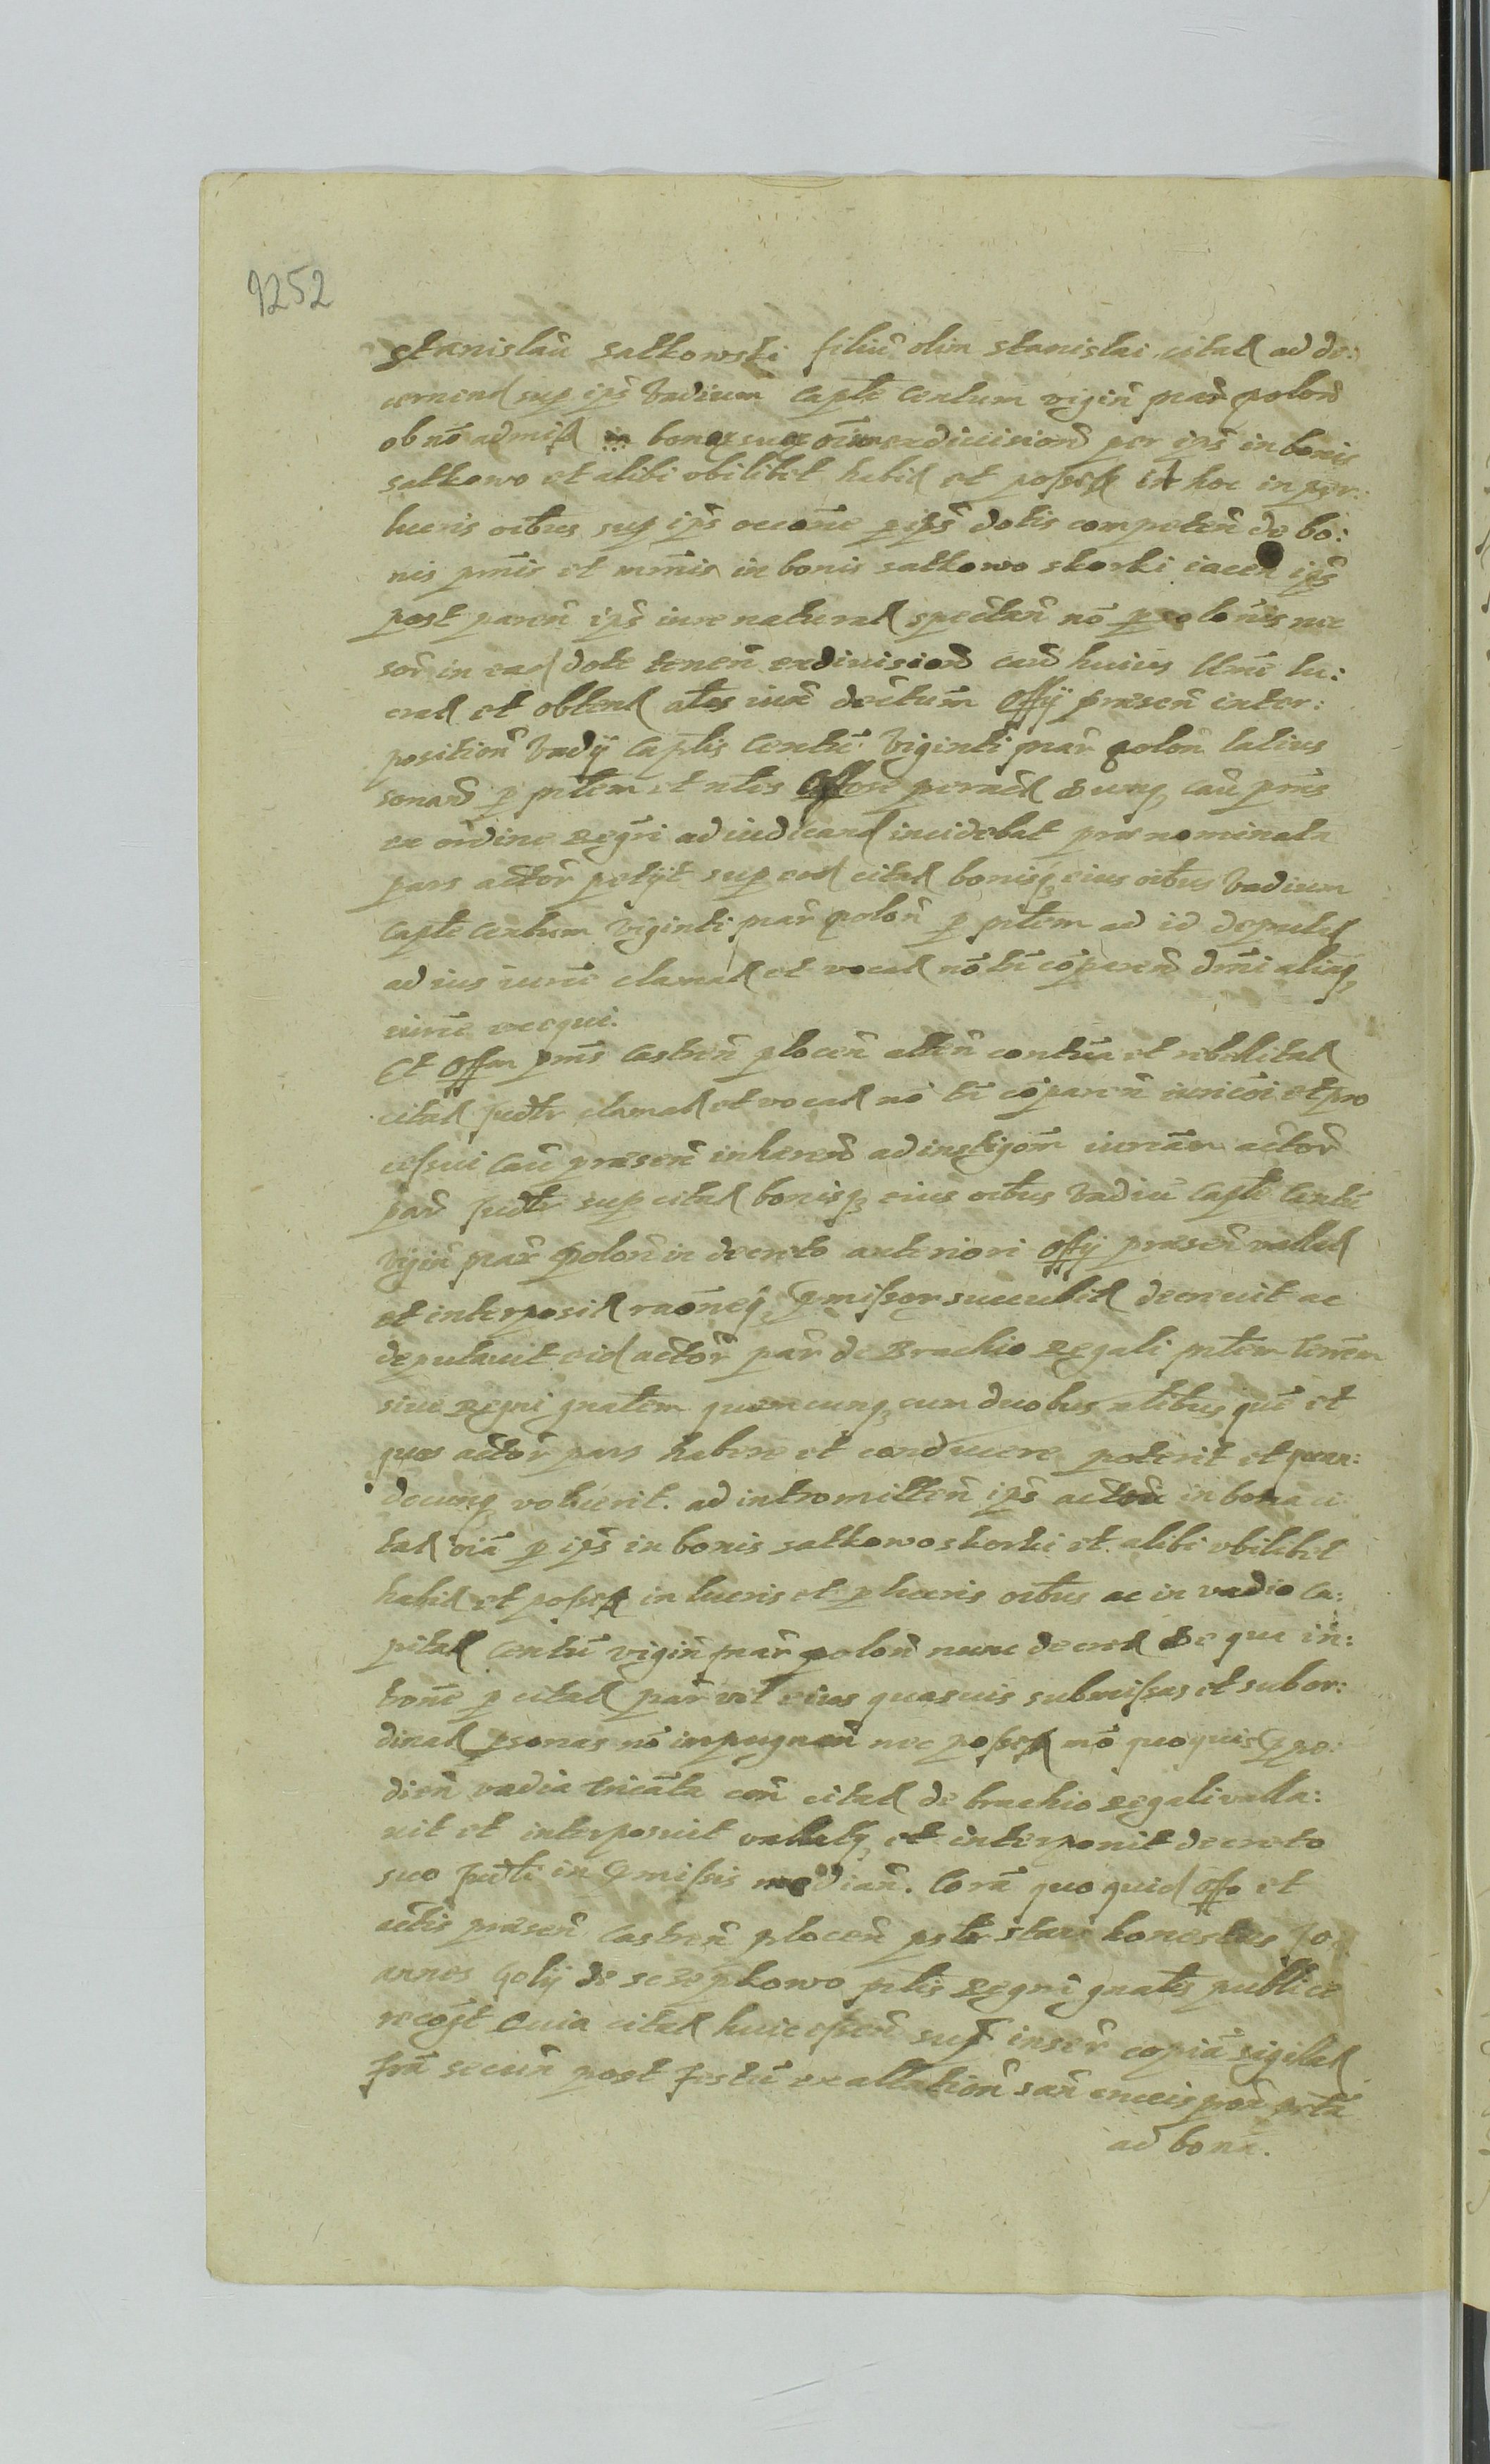 1252
Stanislaū Sałkowski filiū olim Stanislai citat ad de:
cernend sup ips̄ Vadium Captē Centum vigin̄ mar̄ polon̄
ob nō admiss in bonor suor oīm exdiuision̄ per ips̄ in bonis
Sałkowo et alibi vbilibet habit et possess in hoc in per:
lucris oībus sup ips̄ dotis competen̄ de bo:
nis pn̄is et mn̄is in bonis Sałkowo Skorki iacen̄ ips̄
post paren̄ ips̄ iure natural spectan̄ nō
sor̄ in ead dote tenen̄ exdiuision̄ huius lu:
crat et obtent als̄ iux̄ dectum̄ Offy presen̄ inter:
position̄ Vadÿ Captis Centū Viginti mar̄ polon̄ latius
sonan̄ p et peract Cunq cau pn̄s
ex ordine Regr̄i ad iudicand incidebat prænominata
pars actor̄ petÿt sup eod citat bonisq eius oībus Vadium
Captē Centum Viginti mar̄ polon̄ p ad id deputat
ad ius iurē clamat et vocat nō tn̄ cōparen̄ aliaq
iurē exequi.
Et Offm pn̄s Castren̄ plocen̄ atten̄ contūa et rebellitat
citat clamat et vocat nō tn̄ cōparen̄ et pro
cessui Cau presen̄ inhæren̄ ad instigom̄ actor̄
par̄ sup citat bonisq eius oībus Vadiū Captē Centū
Vigin̄ mar̄ Polon̄ in decreto anteriori Offy presen̄ vallat
et interposit raōneq pmissor succubit decreuit ac
deputauit eid actor̄ par̄ de Brachio Regali Terrem
siue Regni gnalem quemcunq cum duobus nlibus quē et
quos actor̄ pars habere et conducere poterit et quan:
docunq voluerit. ad intromitten̄ ips̄ actorē in bona ci
tat oīa p ips̄ in bonis Sałkowo Skorki et alibi vbilibet
habit et possess in lucris et p lucris oībus ac in vadio Ca:
pital Centū vigin̄ mar̄ polon̄ nunc decret De qua in:
tone p citat par̄ vel eius quasuis submissas et subor:
dinat psonas nō inpugnan̄ nec possess mō quoquis
dien̄ vadia con̄ citat de brachio Regali valla:
uit et interposuit vallatq et interponit decreto
suo in pmissis median̄. Corā quo quid Offo et
actis presen̄ Castren̄ plocen̄ stans honestus Jo:
annes Goly de Regni gnalis publice
recogt Quia citat huic essen̄ sup inser̄ copiā sigilat
secun̄ post festū exaltation̄ san̄ crucis
ad bona.